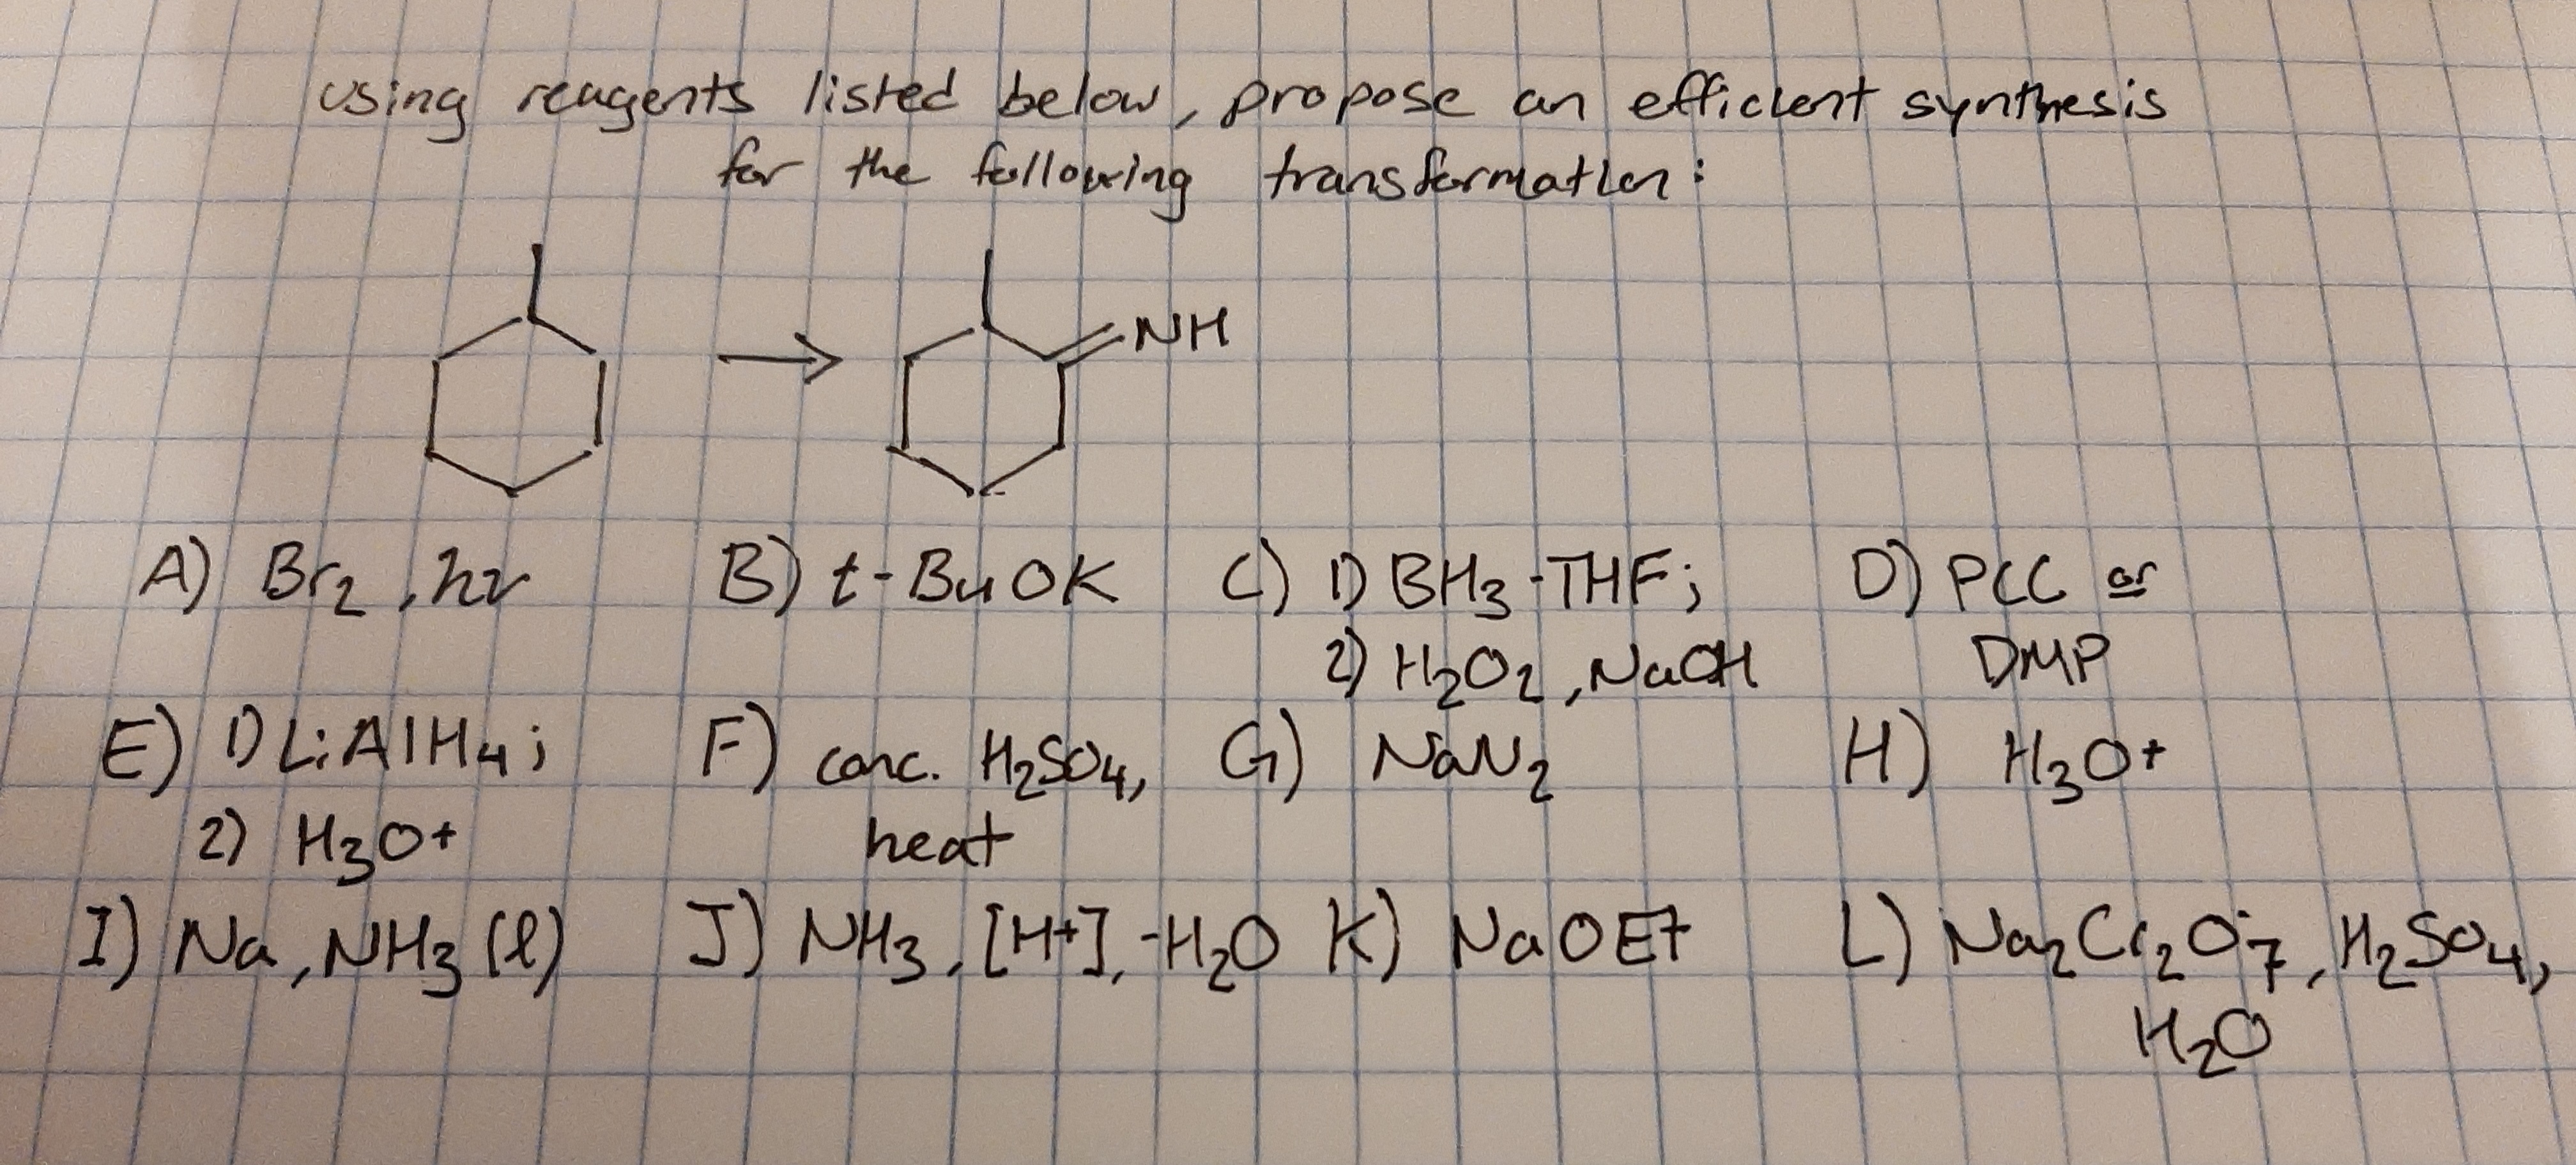 using reagents listed below, propose an efficient synthesis
for the following transformation:
NH
A) Br2, hν B) t-BuOK C) 1) BH3-THF; D) PCC or
2) H2O2, NaOH DMP
E) 1) LiAlH4; F) conc. H2SO4, G) NaN2 H) H3O+
2) H3O+ heat
I) Na, NH3 (l) J) NH3, [H+], -H2O K) NaOEt L) Na2Cr2O7, H2SO4,
H2O